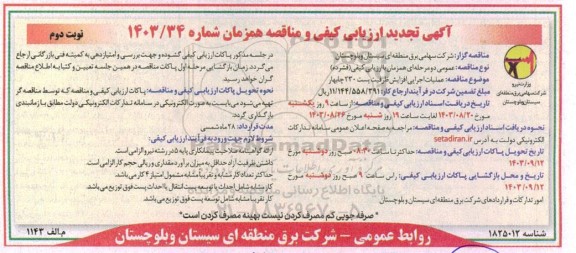 آگهی تجدید ارزیابی کیفی و مناقصه همزمان شماره ۱۴۰۳/۳۴
نوبت دوم
وزارت نیرو
شرکت سهامی برق منطقه ای
سیستان و بلوچستان
مناقصه گزار: شرکت سهامی برق منطقه ای سیستان وبلوچستان
نوع مناقصه: عمومی دو مرحله ای همزمان با ارزیابی کیفی (فشرده)
موضوع مناقصه: عملیات اجرایی افزایش ظرفیت پست ۲۳۰ چابهار
مبلغ تضمین شرکت در فرآیند ارجاع کار: ۱۱/۱۴۴/۵۵۸/۲۹۱ ریال
تاریخ دریافت اسناد ارزیابی کیفی و مناقصه: از ساعت ۹ روز یکشنبه
مورخ ۱۴۰۳/۰۸/۲۰ لغایت ساعت ۱۹ روز شنبه مورخ ۱۴۰۳/۰۸/۲۶
نحوه دریافت اسناد ارزیابی کیفی و مناقصه: مراجعه به صفحه اعلان عمومی سامانه تدارکات
الکترونیکی دولت به آدرس setadiran.ir
تاریخ تحویل پاکات ارزیابی کیفی و مناقصه: حداکثر تا ساعت صبح روز دوشنبه مورخ
۱۴۰۳/۰۹/۱۲
تاریخ و محل بازگشایی پاکات ارزیابی کیفی: راس ساعت ۹ صبح روز دوشنبه مورخ
۱۴۰۳/۰۹/۱۲
امور تدارکات و قراردادهای شرکت برق منطقه ای سیستان و بلوچستان
در جلسه مذکور پاکات ارزیابی کیفی گشوده و جهت بررسی و امتیازدهی به کمیته فنی بازرگانی ارجاع
می گردد. زمان بازگشایی مرحله اول پاکات مناقصه در همین جلسه تعیین و کتبا به اطلاع مناقصه
گران خواهد رسید.
نحوه تحویل پاکات ارزیابی کیفی و مناقصه: پاکات ارزیابی کیفی و مناقصه که توسط مناقصه گر
تهیه می شود می بایست به صورت الکترونیکی در سامانه تدارکات الکترونیکی دولت مطابق با زمانبندی
بارگذاری گردد.
مدت قرارداد: ۲۸ ماه شمسی
شرایط لازم جهت ورود به فرآیند ارزیابی کیفی:
ارائه گواهینامه صلاحیت پیمانکاری پایه ۵ در رشته نیرو الزامی است.
داشتن ظرفیت آزاد حداقل به میزان برآورد مقداری و ریالی حجم کار الزامی است.
حداکثر تعداد کار مشابه و تقریبا مشابه مشمول امتیاز ۴ کار می باشد.
کار مشابه شامل احداث یا توسعه پست انتقال یا احداث پست فوق توزیع می باشد.
کار تقریبا مشابه شامل توسعه پست فوق توزیع می باشد.
*صرفه جویی کم مصرف کردن نیست بهینه مصرف کردن است*
شناسه ۱۸۲۵۰۱۲
روابط عمومی – شرکت برق منطقه ای سیستان وبلوچستان
م.الف ۱۱۴۳